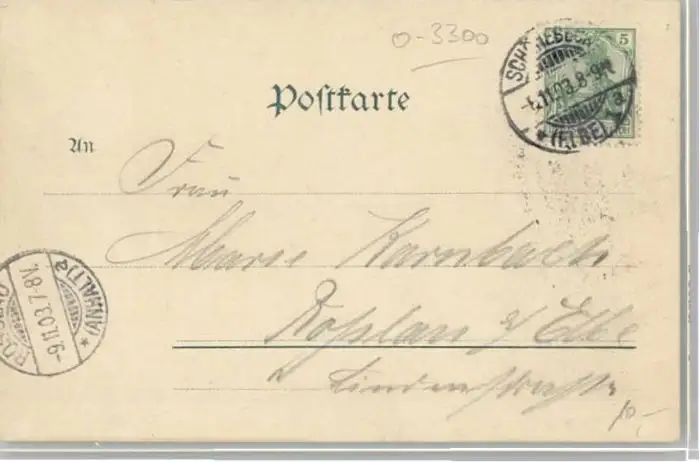 0-3300
5
SCHÖNEBECK
11.03.8-9N.
a
* (ELBE)
Postkarte
An
Frau
Marie Karnbach
Roßlau a/ Elbe
Lindenstraße
(ANHALT) a
-9.11.03.7-8V.
10,-